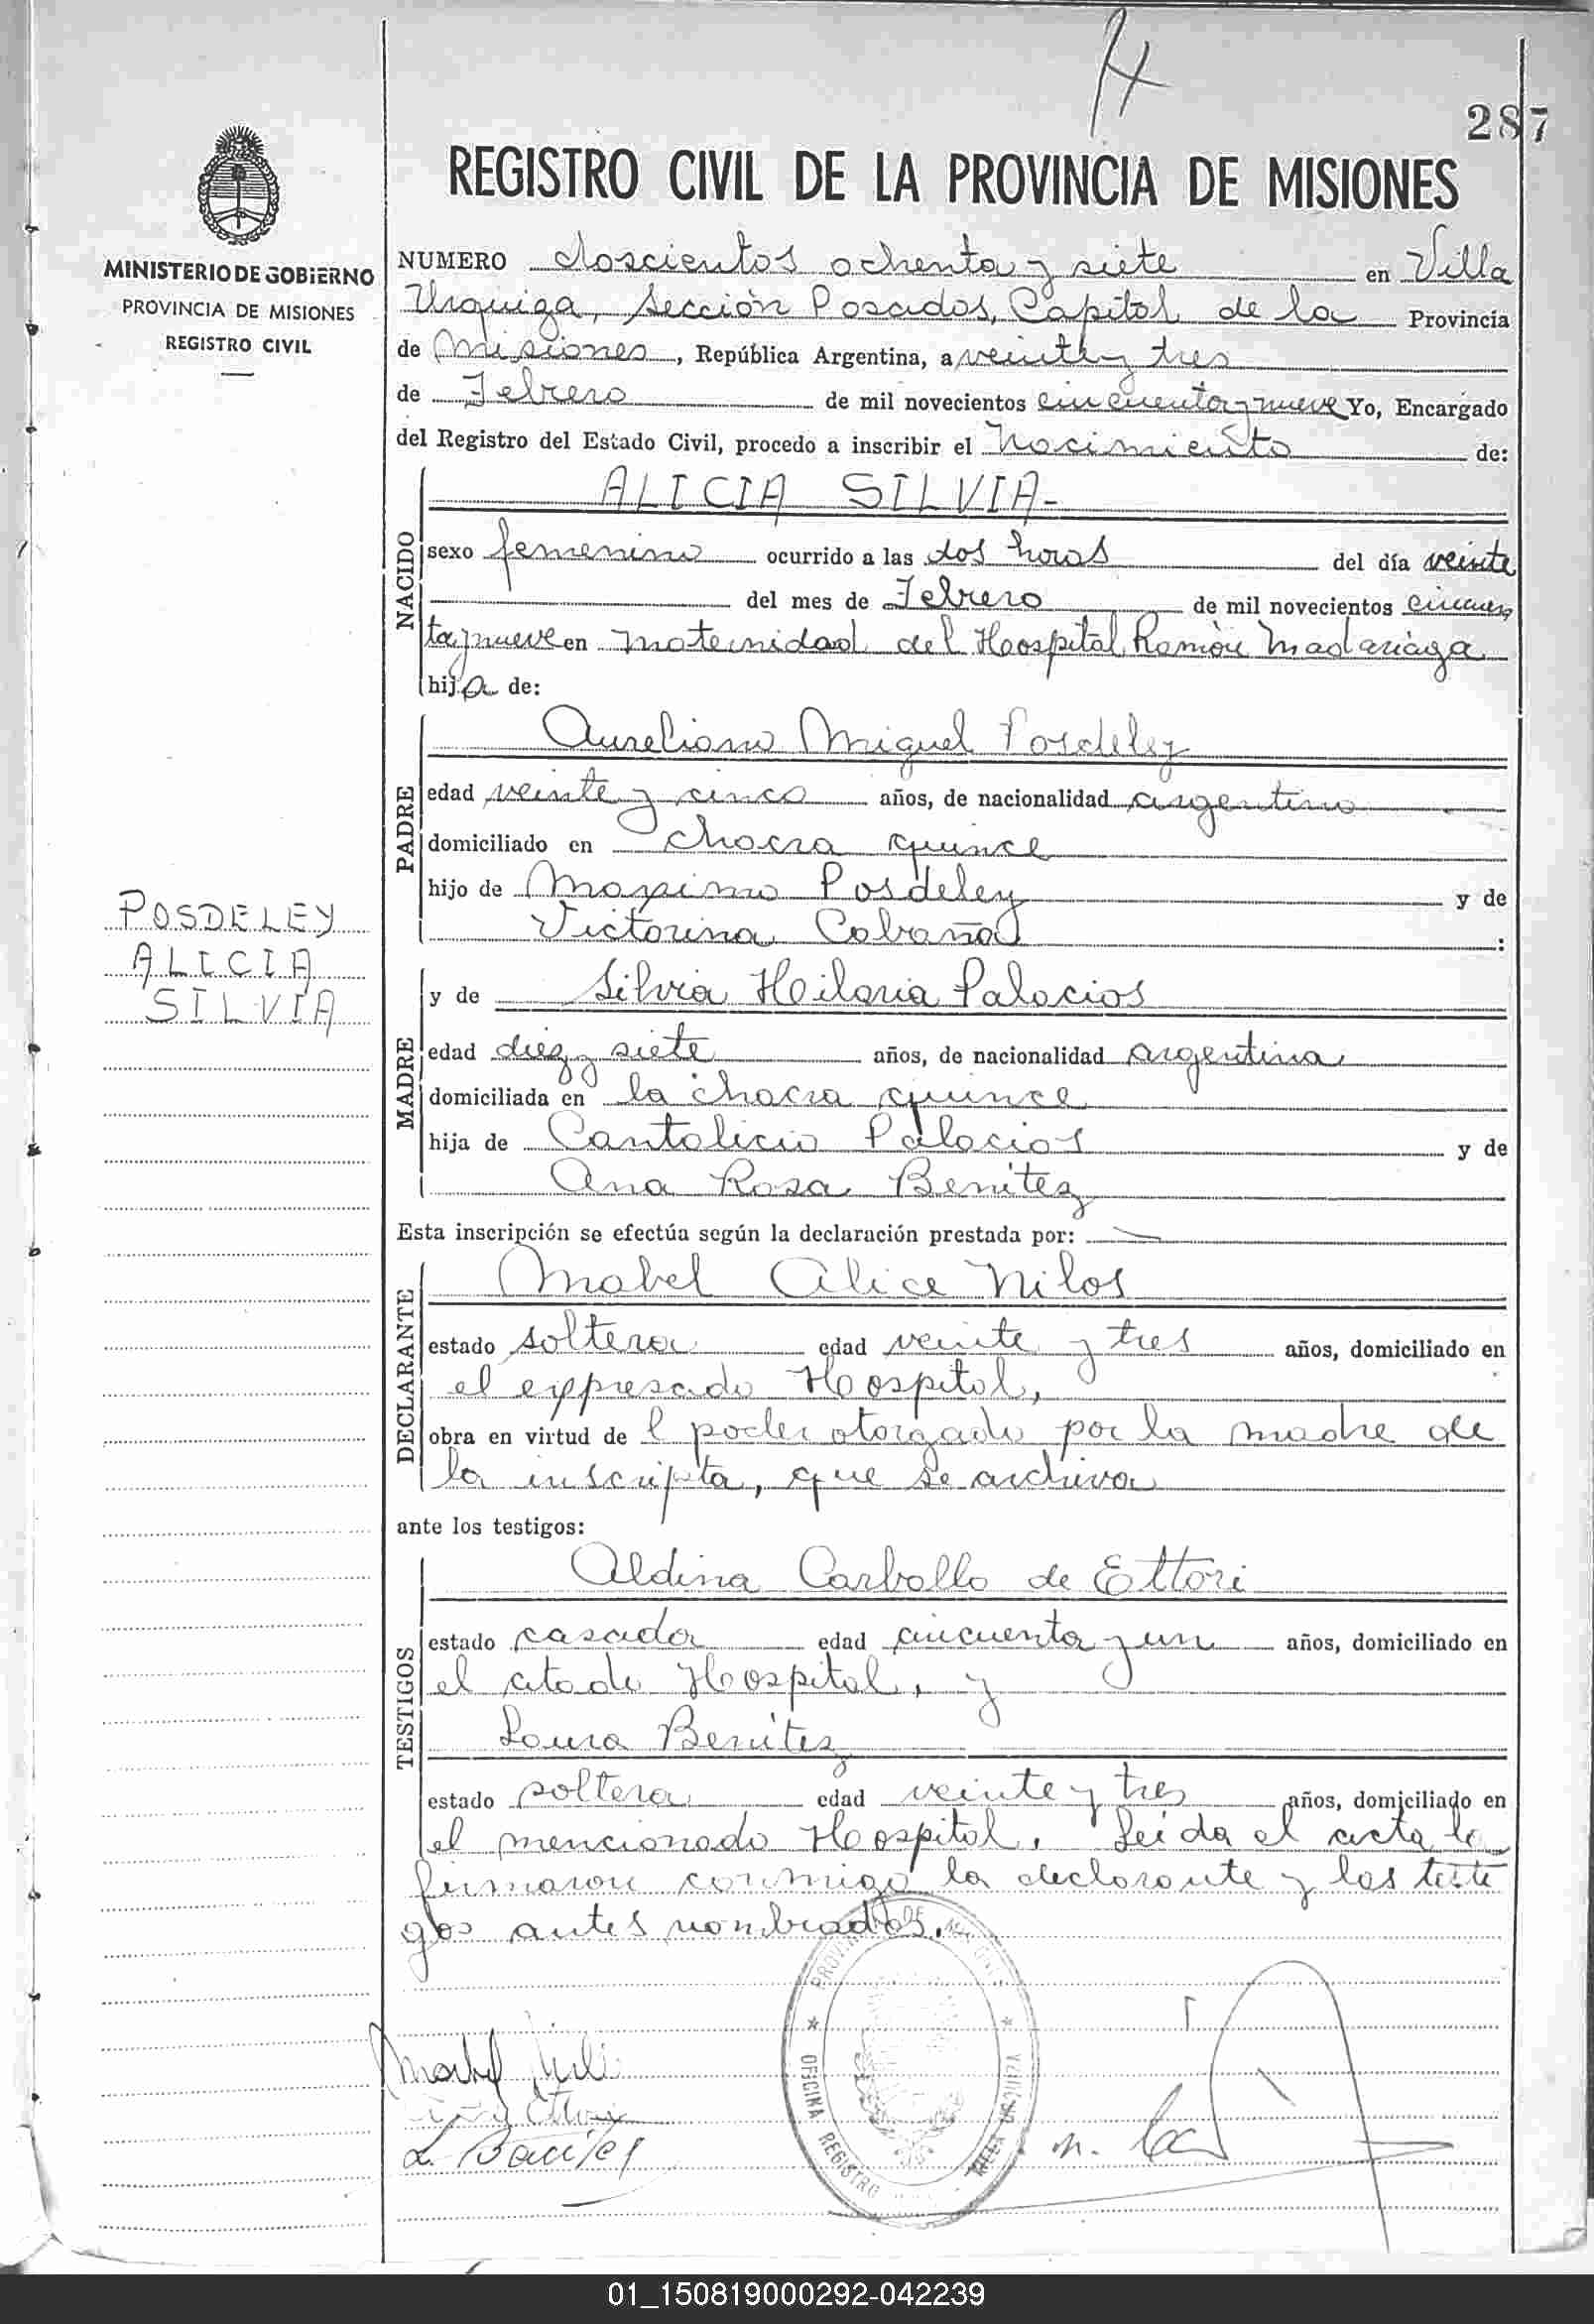 287
REGISTRO CIVIL DE LA PROVINCIA DE MISIONES
MINISTERIO DE GOBIERNO
PROVINCIA DE MISIONES
REGISTRO CIVIL
NUMERO doscientos ochenta y siete en Villa
Urquiza, Sección Posadas, Capital de la Provincia
de Misiones, República Argentina, a veinte y tres
de Febrero de mil novecientos cincuenta y nueve Yo, Encargado
del Registro del Estado Civil, procedo a inscribir el Nacimiento de:
NACIDO
ALICIA SILVIA-
sexo femenino ocurrido a las dos horas del día veinte
del mes de Febrero de mil novecientos cincuen
ta y nueve en Maternidad del Hospital Ramón Madariaga
hija de:
PADRE
Aureliano Miguel Posdeley
edad veinte y cinco años, de nacionalidad argentino
domiciliado en chacra quince
hijo de Maximo Posdeley y de
Victorina Cabraña :
POSDELEY
ALICIA
SILVIA
MADRE
y de Silvia Hilaria Palacios
edad diez y siete años, de nacionalidad argentina
domiciliada en la chacra quince
hija de Cantalicio Palacios y de
Ana Rosa Benitez
Esta inscripción se efectúa según la declaración prestada por:
DECLARANTE
Mabel Alice Nilos
estado soltera edad veinte y tres años, domiciliado en
el expresado Hospital,
obra en virtud de l poder otorgado por la madre de
la inscripta, que se archiva
ante los testigos:
TESTIGOS
Aldina Carballo de Ettori
estado casada edad cincuenta y un años, domiciliado en
el citado Hospital, y
Laura Benitez
estado soltera edad veinte y tres años, domiciliado en
el mencionado Hospital. Leida el acta la
firmaron conmigo la declarante y los testi
gos antes nombrados.
PROVINCIA DE MISIONES
OFICINA REGISTRO VILLA URQUIZA
Mabel
Ettori
L. Benitez
01_150819000292-042239